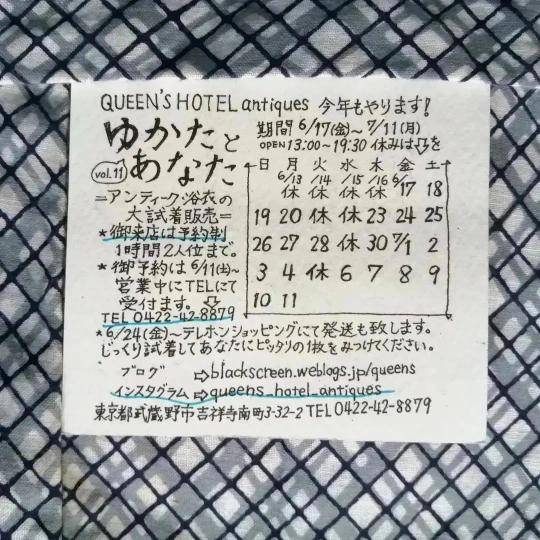 QUEEN'S HOTEL antiques 今年もやります!
ゆかたと
あなた
vol.11
期間 6/17(金)~7/11(月)
OPEN 13:00~19:30 休みは⇩を
=アンティーク浴衣の
大試着販売=
*御来店は予約制
1時間2人位まで。
*御予約は6/11(土)~
営業中にTELにて
受付ます。⇩
TEL 0422-42-8879
日 月 火 水 木 金 土
6/13 6/14 6/15 6/16 6/
休 休 休 休 17 18
19 20 休 休 23 24 25
26 27 28 休 30 7/1 2
3 4 休 6 7 8 9
10 11
*6/24(金)~テレホンショッピングにて発送も致します。
じっくり試着してあなたにピッタリの1枚をみつけてください。
ブログ ⇨blackscreen.weblogs.jp/queens
インスタグラム ⇨queens_hotel_antiques
東京都武蔵野市吉祥寺南町3-32-2 TEL 0422-42-8879